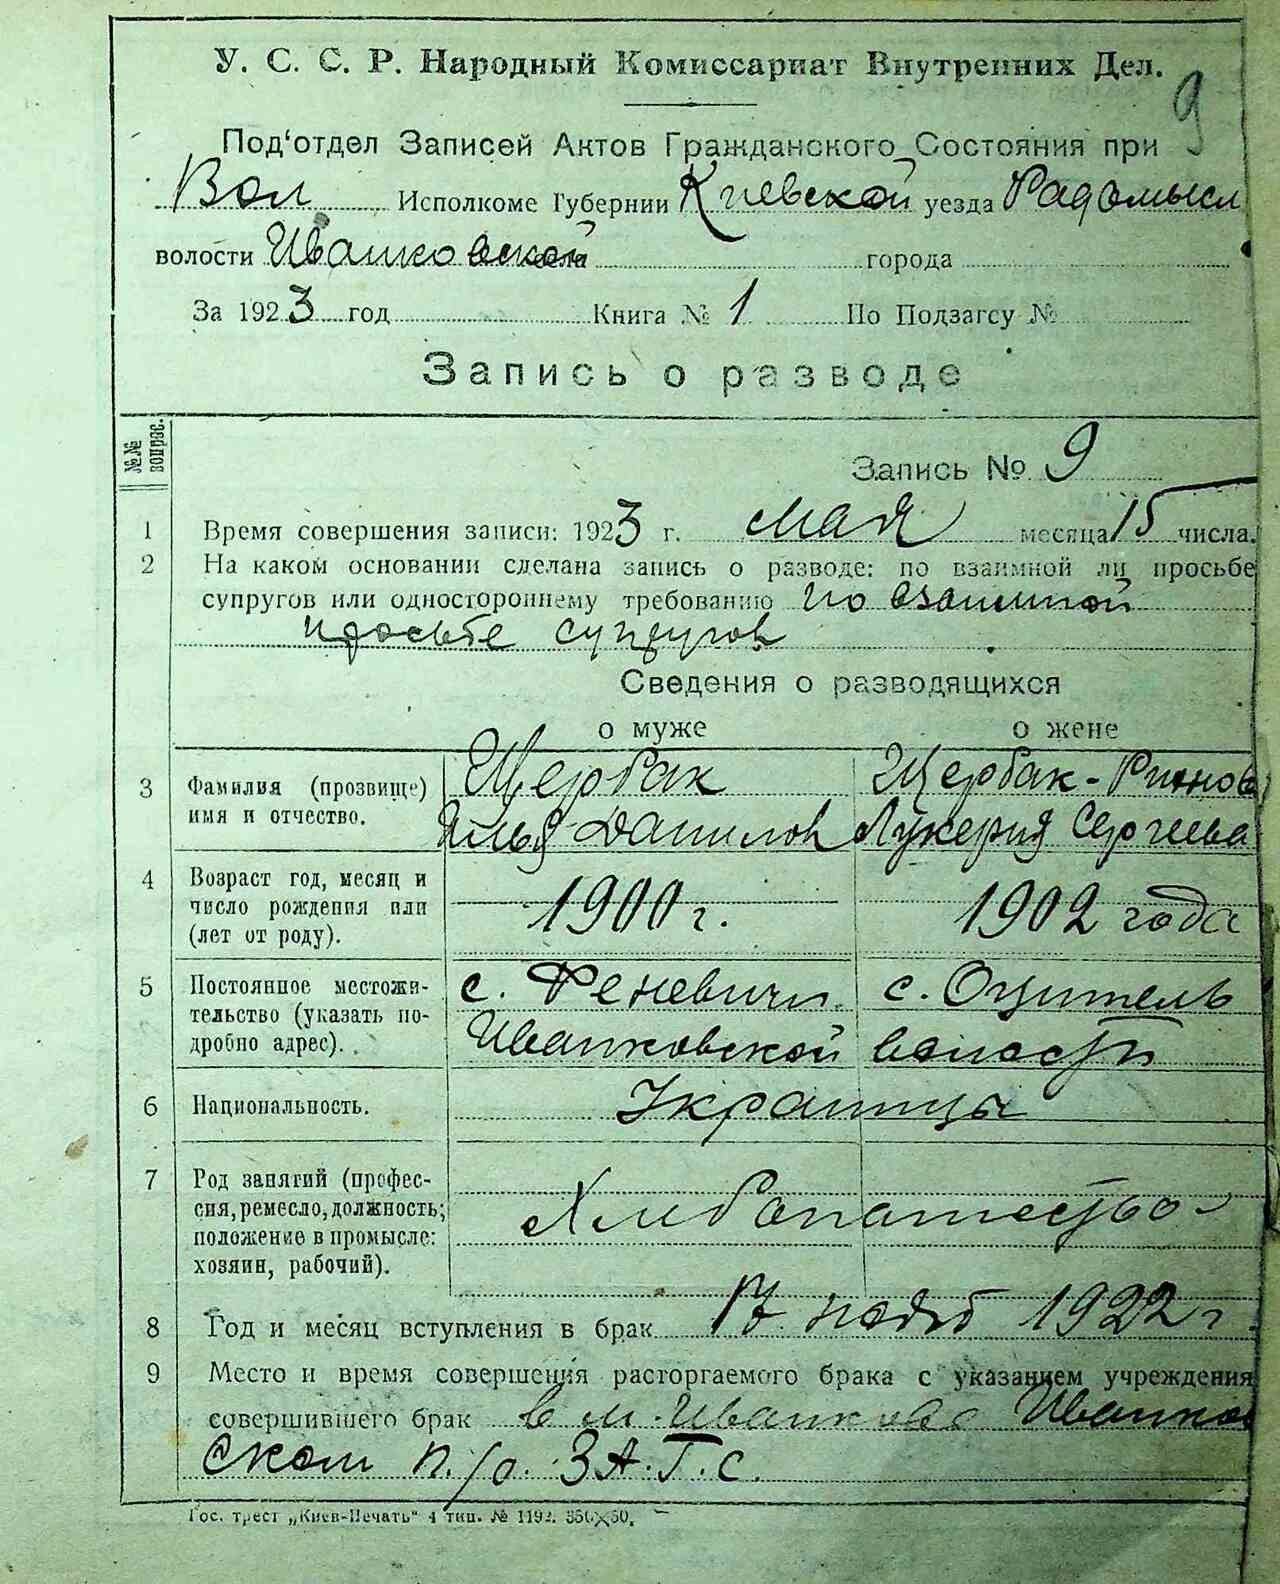 У. С. С. Р. Народный Комиссариат Внутренних Дел.
9
Под‘отдел Записей Актов Гражданского Состояния при
Вол Исполкоме Губернии Киевской уезда Радомысл
волости Иванковской города
За 1923 год Книга № 1 По Подзагсу №
Запись о разводе
№№ вопрос.
Запись № 9
1 Время совершения записи: 1923 г. мая месяца 15 числа.
2 На каком основании сделана запись о разводе: по взаимной ли просьбе
супругов или одностороннему требованию по взаимной
просьбе супругов
Сведения о разводящихся
о муже о жене
3 Фамилия (прозвище) Щербак Щербак-
имя и отчество. Илья Данилов Лукерия Сергеева
4 Возраст год, месяц и
число рождения или 1900 г. 1902 года
(лет от роду).
5 Постоянное местожи- с. Феневичи с. Оцитель
тельство (указать по- Иванковской волости
дробно адрес).
6 Национальность. Украинцы
7 Род занятий (профес-
сия, ремесло, должность; Хлебопашество
положение в промысле:
хозяин, рабочий).
8 Год и месяц вступления в брак 17 нояб 1922 г.
9 Место и время совершения расторгаемого брака с указанием учреждения
совершившего брак в м. Иванкове Иванков
ском п/о. З.А.Г.С.
Гос. трест „Киев-Печать“ 4 тип. № 1192. 350×50.